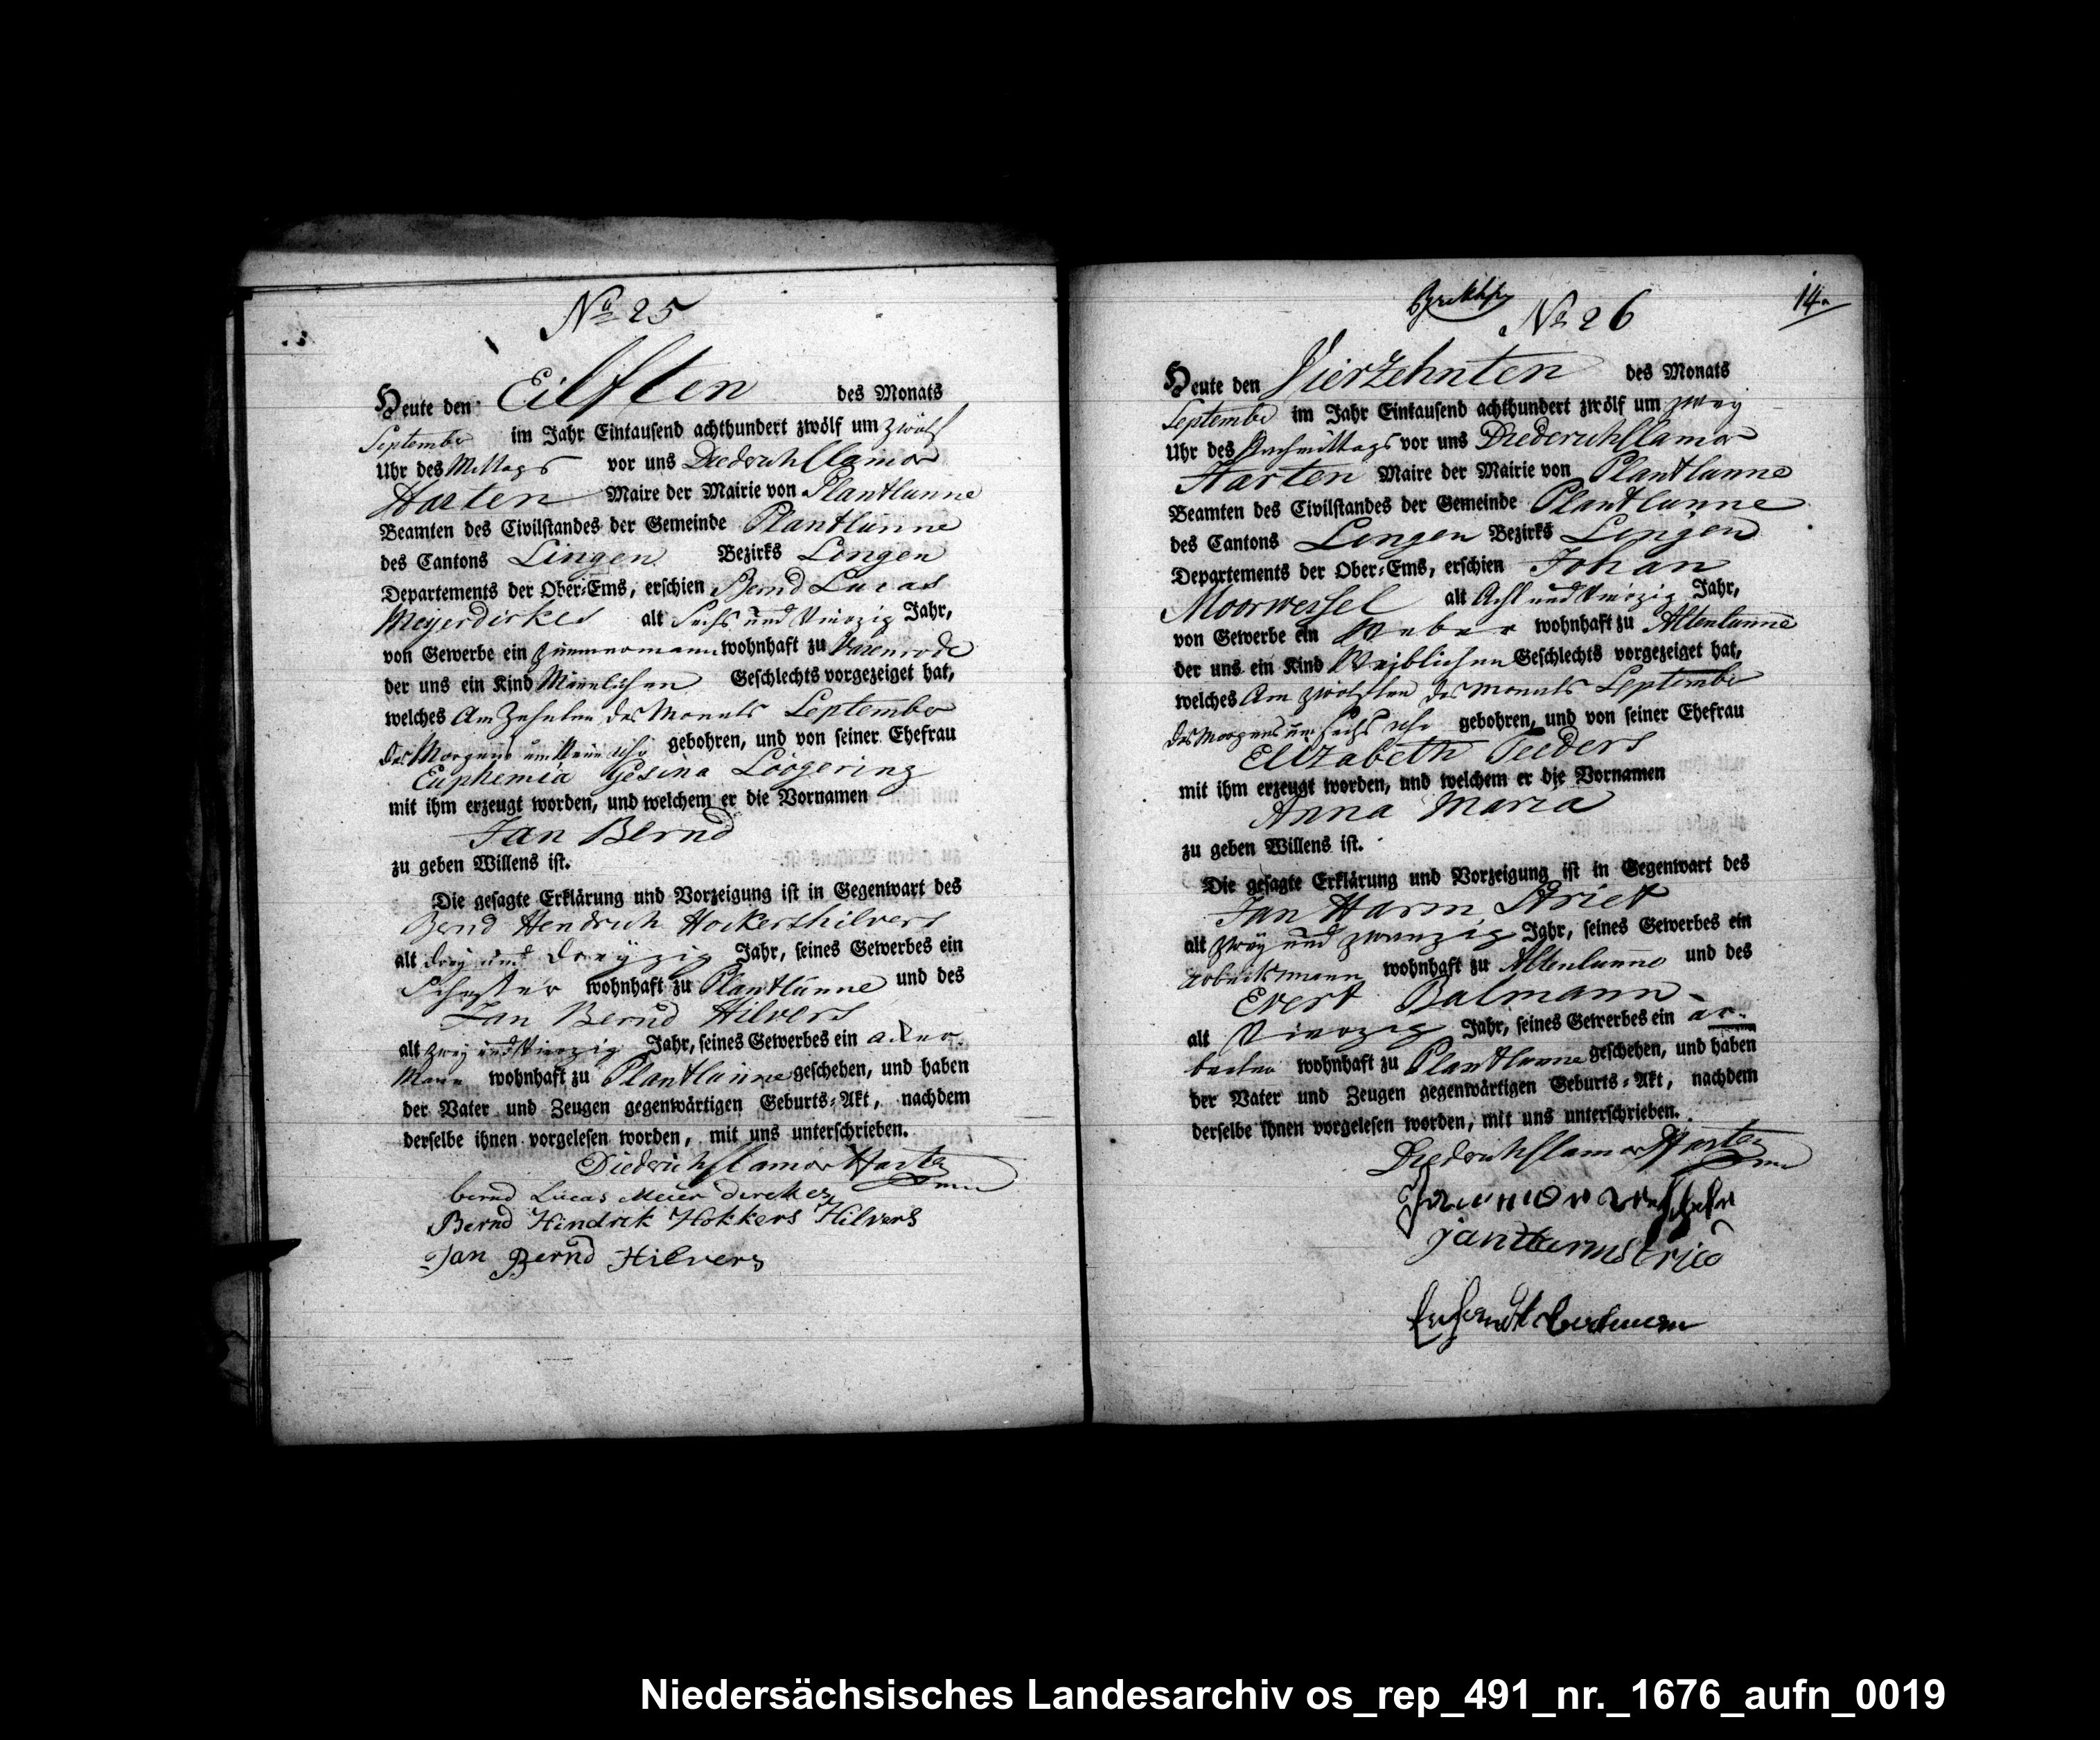 No 25
Heute den Eilften des Monats
September im Jahr Eintausend achthundert zwölf um zwölf
Uhr des Mittags vor uns Diederich Clamor
Harten Maire der Mairie von Plantlünne
Beamten des Civilstandes der Gemeinde Plantlünne
des Cantons Lingen Bezirks Lingen
Departements der Ober-Ems, erschien Bernd Lucas
Meyerdirkes alt Sechs und Vierzig Jahr,
von Gewerbe ein Zimmermann wohnhaft zu Varenrode
der uns ein Kind Männlichen Geschlechts vorgezeiget hat,
welches Am Zehnten des Monats September
des Morgens um Neun uhr gebohren, und von seiner Ehefrau
Euphemia Gesina Loögering
mit ihm erzeugt worden, und welchem er die Vornamen
Jan Bernd
zu geben Willens ist.
Die gesagte Erklärung und Vorzeigung ist in Gegenwart des
Bernd Hendrich Hockershilvers
alt drey und dreyzig Jahr, seines Gewerbes ein
wohnhaft zu Plantlünne und des
Jan Bernd Hilvers
alt zwey und Vierzig Jahr, seines Gewerbes ein acker
Mann wohnhaft zu Plantlünne geschehen, und haben
der Vater und Zeugen gegenwärtigen Geburts-Akt, nachdem
derselbe ihnen vorgelesen worden, mit uns unterschrieben.
Diederich Clamor Harten
bernd Lucas Meier derckes
Bernd Hindrik Hokkers Hilvers
Jan Bernd Hilvers
14.
No 26
Heute den Vierzehnten des Monats
September im Jahr Eintausend achthundert zwölf um zwey
Uhr des Nachmittags vor uns Diederich Clamor
Harten Maire der Mairie von Plantlünne
Beamten des Civilstandes der Gemeinde Plantlünne
des Cantons Lingen Bezirks Lingen
Departements der Ober-Ems, erschien Johan
Moorwessel alt Acht und Vierzig Jahr,
von Gewerbe ein Weber wohnhaft zu Altenlünne
der uns ein Kind Weiblichen Geschlechts vorgezeiget hat,
welches Am zwölften des Monats September
des Morgens um sechs uhr gebohren, und von seiner Ehefrau
Elizabeth Teeders
mit ihm erzeugt worden, und welchem er die Vornamen
Anna Maria
zu geben Willens ist.
Die gesagte Erklärung und Vorzeigung ist in Gegenwart des
Jan Harm Striet
alt zwey und zwanzig Jahr, seines Gewerbes ein
arbeitsmann wohnhaft zu Altenlünne und des
Evert Balmann
alt Vierzig Jahr, seines Gewerbes ein ar-
beiter wohnhaft zu Plantlünne geschehen, und haben
der Vater und Zeugen gegenwärtigen Geburts-Akt, nachdem
derselbe ihnen vorgelesen worden, mit uns unterschrieben.
Diederich Clamor Harten
Niedersächsisches Landesarchiv os_rep_491_nr._1676_aufn_0019